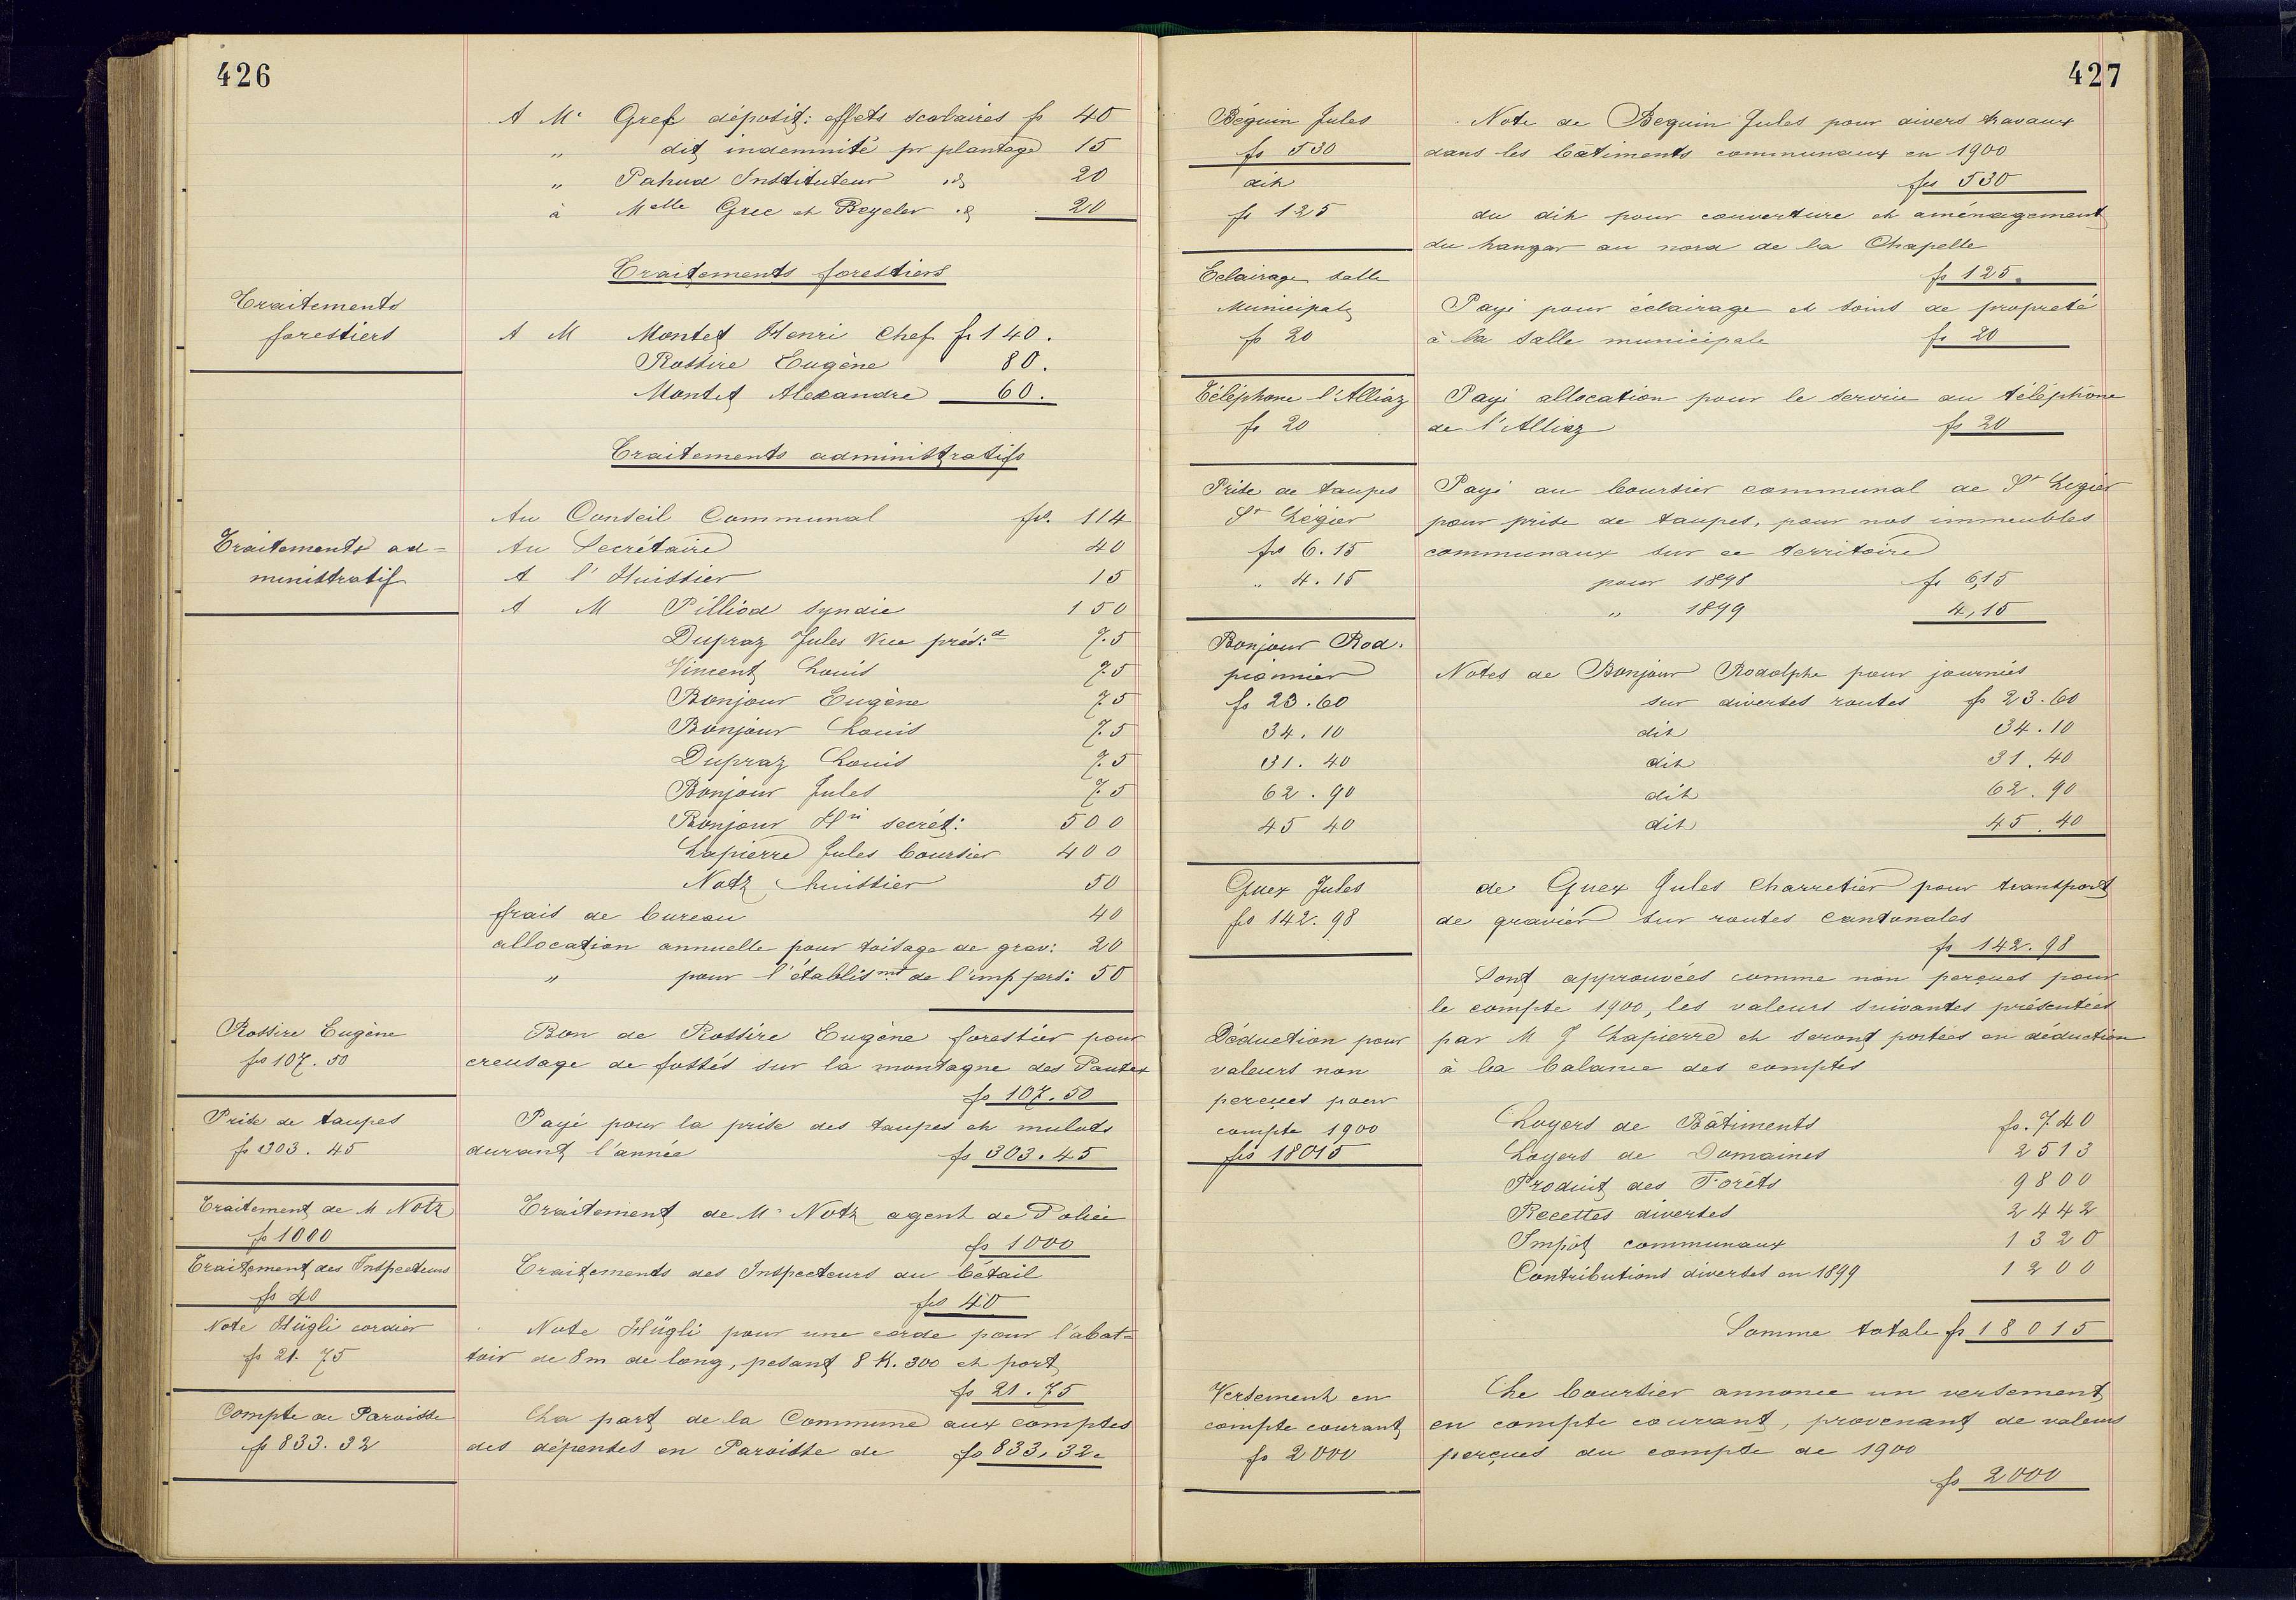 426
A Mr Gref déposit: effets scolaires fr 40
„ dit indemnité pr plantage 15
„ Pahud Instituteur id 20
à Melle Grec et Beyeler id 20
Traitements forestiers
Traitements
forestiers
A M Montet Henri Chef fr 140.
Rossire Eugène 80.
Montet Alexandre 60.
Traitements administratifs
Traitements ad=
ministratif
Au Conseil Communal frs. 114
Au Secrétaire 40
A l'Huissier 15
A M Pilliod syndic 150
Dupraz Jules Vice prés:d 75
Vincent Louis 75
Bonjour Eugène 75
Bonjour Louis 75
Dupraz Louis 75
Bonjour Jules 75
Bonjour Hri secrét: 500
Lapierre Jules boursier 400
Notz huissier 50
frais de bureau 40
allocation annuelle pour toisage de grav: 20
„ pour l'établismt de l'imp pers: 50
Rossire Eugène
frs 107.50
Bon de Rossire Eugène forestier pour
creusage de fossés sur la montagne des Pautex
fs 107.50
Prise de taupes
fr 303.45
Payé pour la prise des taupes et mulots
durant l'année fs 303.45
Traitement de M Notz
fs 1000
Traitement de Mr Notz agent de Police
fs 1000
Traitement des Inspecteurs
fs 40
Traitements des Inspecteurs du bétail
frs 40
Note Hügli cordier
fr 21.75
Note Hügli pour une corde pour l'abat=
toir de 8m de long, pesant 8 K. 300 et port
fs 21.75
Compte de Paroisse
fr 833.32
La part de la Commune aux comptes
des dépenses en Paroisse de fs 833,32.
427
Béguin Jules
fs 530
Note de Beguin Jules pour divers travaux
dans les bâtiments communaux en 1900
frs 530
dit
fr 125
du dit pour couverture et aménagement
du hangar au nord de la Chapelle
fs 125.
Eclairage salle
Municipale
fs 20
Payé pour éclairage et soins de propreté
à la salle municipale fr 20
Téléphone l'Alliaz
fr 20
Payé allocation pour le service du téléphone
de l'Alliaz fs 20
Prise de taupes
St Légier
frs 6.15
„ 4.15
Payé au boursier communal de St Légier
pour prise de taupes, pour nos immeubles
communaux sur ce territoire
pour 1898 fr 6,15
„ 1899 4,15
Bonjour Rod.
pionnier
fs 23.60
34.10
31.40
62.90
45 40
Notes de Bonjour Rodolphe pour journées
sur diverses routes fs 23.60
dit 34.10
dit 31.40
dit 62.90
dit 45.40
Guex Jules
frs 142.98
de Guex Jules Charretier pour transport
de gravier sur routes cantonales
fs 142.98
Sont approuvées comme non perçues pour
le compte 1900, les valeurs suivantes présentées
par M J Lapierre et seront portées en déduction
à la balance des comptes
Déduction pour
valeurs non
perçues pour
compte 1900
frs 18015
Loyers de Bâtiments fs. 740
Loyers de Domaines 2513
Produit des Forêts 9800
Recettes diverses 2442
Impôt communaux 1320
Contributions diverses en 1899 1200
Somme totale fs 18015
Versement en
compte courant
fs 2000
Le boursier annonce un versement
en compte courant, provenant de valeurs
perçues du compte de 1900
fs 2000